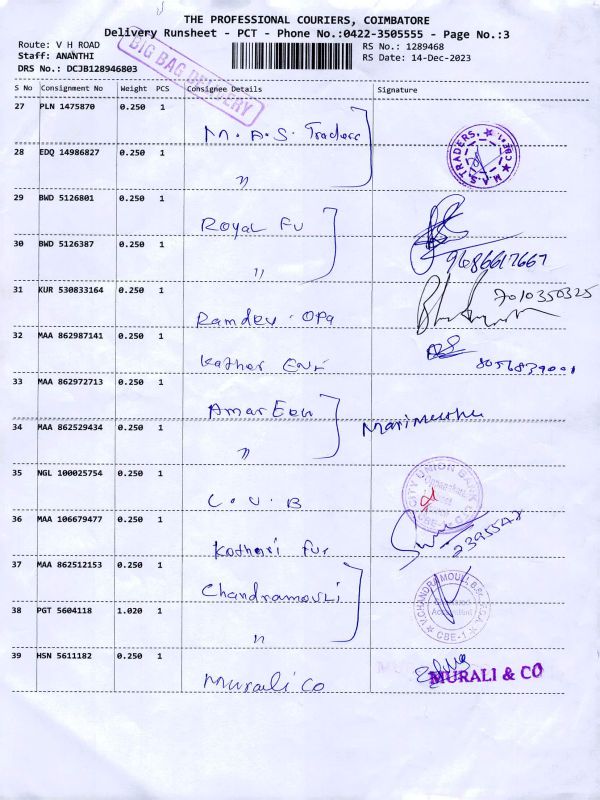 THE PROFESSIONAL COURIERS, COIMBATORE
Delivery Runsheet - PCT - Phone No.:0422-3505555 - Page No.:3
Route: V H ROAD
RS No.: 1289468
Staff: ANANTHI
RS Date: 14-Dec-2023
DRS No.: DCJB128946803
BIG BAG DELIVERY
S No Consignment No Weight PCS Consignee Details Signature
27 PLN 1475870 0.250 1 M.A.S. Traders
28 EDQ 14986827 0.250 1 "
M.A.S. TRADERS. CBE-1
29 BWD 5126801 0.250 1 Royal Fu
30 BWD 5126387 0.250 1 "
31 KUR 530833164 0.250 1 Ramdev. 7010350325
32 MAA 862987141 0.250 1 8056839001
33 MAA 862972713 0.250 1 Amar
34 MAA 862529434 0.250 1 "
35 NGL 100025754 0.250 1 C.U.B
CITY UNION BANK
36 MAA 106679477 0.250 1 Kothari Fur
37 MAA 862512153 0.250 1 Chandramouli
38 PGT 5604118 1.020 1 "
V.CHANDRAMOULI, CBE-1
39 HSN 5611182 0.250 1 Murali Co
MURALI & CO